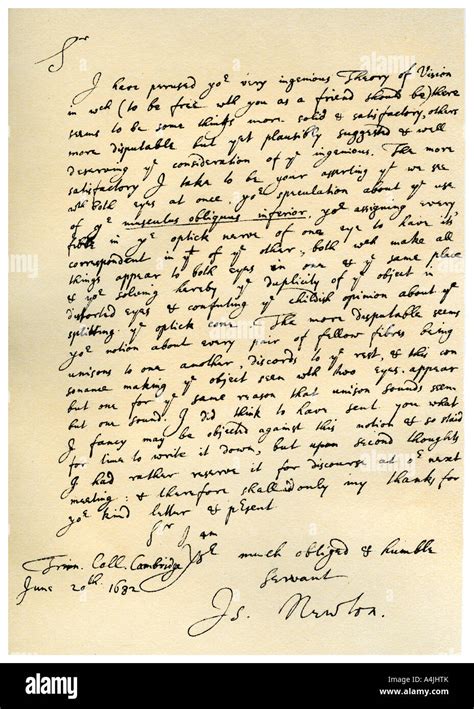 Sr
I have perused yor very ingenious Theory of Vision
in wch (to be free wth you as a friend should be) there
seems to be some things more solid & satisfactory, others
more disputable but yet plausibly suggested & well
deserving ye consideration of ye ingenious. The more
satisfactory I take to be your asserting yt we see
wth both eyes at once, yor speculation about ye use
of ye musculus obliquus inferior, yor assigning every
fibre in ye optick nerve of one eye to have its
correspondent in yt of ye other, both wch make all
things appear to both eyes in one & ye same place
& yor solving hereby ye duplicity of ye object in
distorted eyes & confuting ye childish opinion about ye
splitting ye optick cone. The more disputable seems
yor notion about every pair of fellow fibres being
unisons to one another, discords to ye rest, & this con
sonance making ye object seen with two eyes appear
but one for ye same reason that unison sounds seem
but one sound. I did think to have sent you what
I fancy may be objected against this notion & so staid
for time to write it down, but upon second thoughts
I had rather reserve it for discourse at or next
meeting: & therefore shall add only my thanks for
yor kind letter & present.
Sr I am
Yor much obliged & humble
Trin. Coll. Cambridge
Servant
June 20th. 1682
Is. Newton.
alamy
Image ID: A4JHTK
www.alamy.com